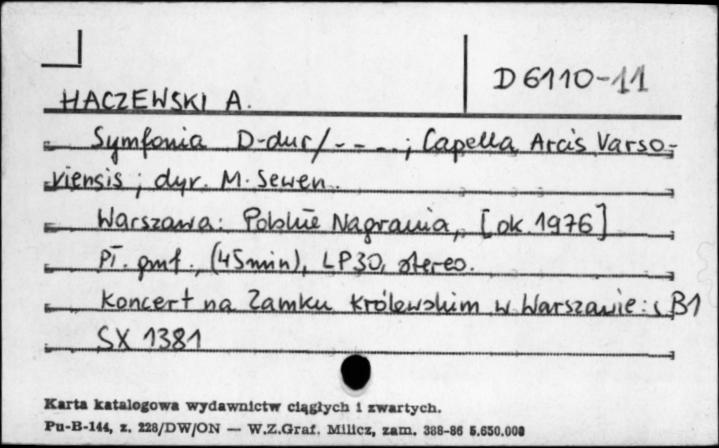 D 6110-11
HACZEWSKI A.
Symfonia D-dur/- - - -; Capella Arcis Varso-
viensis; dyr. M. Sewen.
Warszawa: Polskie Nagrania, [ok. 1976]
Pł. gmf., (45min), LP30, stereo.
Koncert na Zamku Królewskim w Warszawie: B1
SX 1381
Karta katalogowa wydawnictw ciągłych i zwartych.
Pu-B-144, z. 228/DW/ON — W.Z.Graf. Milicz, zam. 388-86 5.650.000